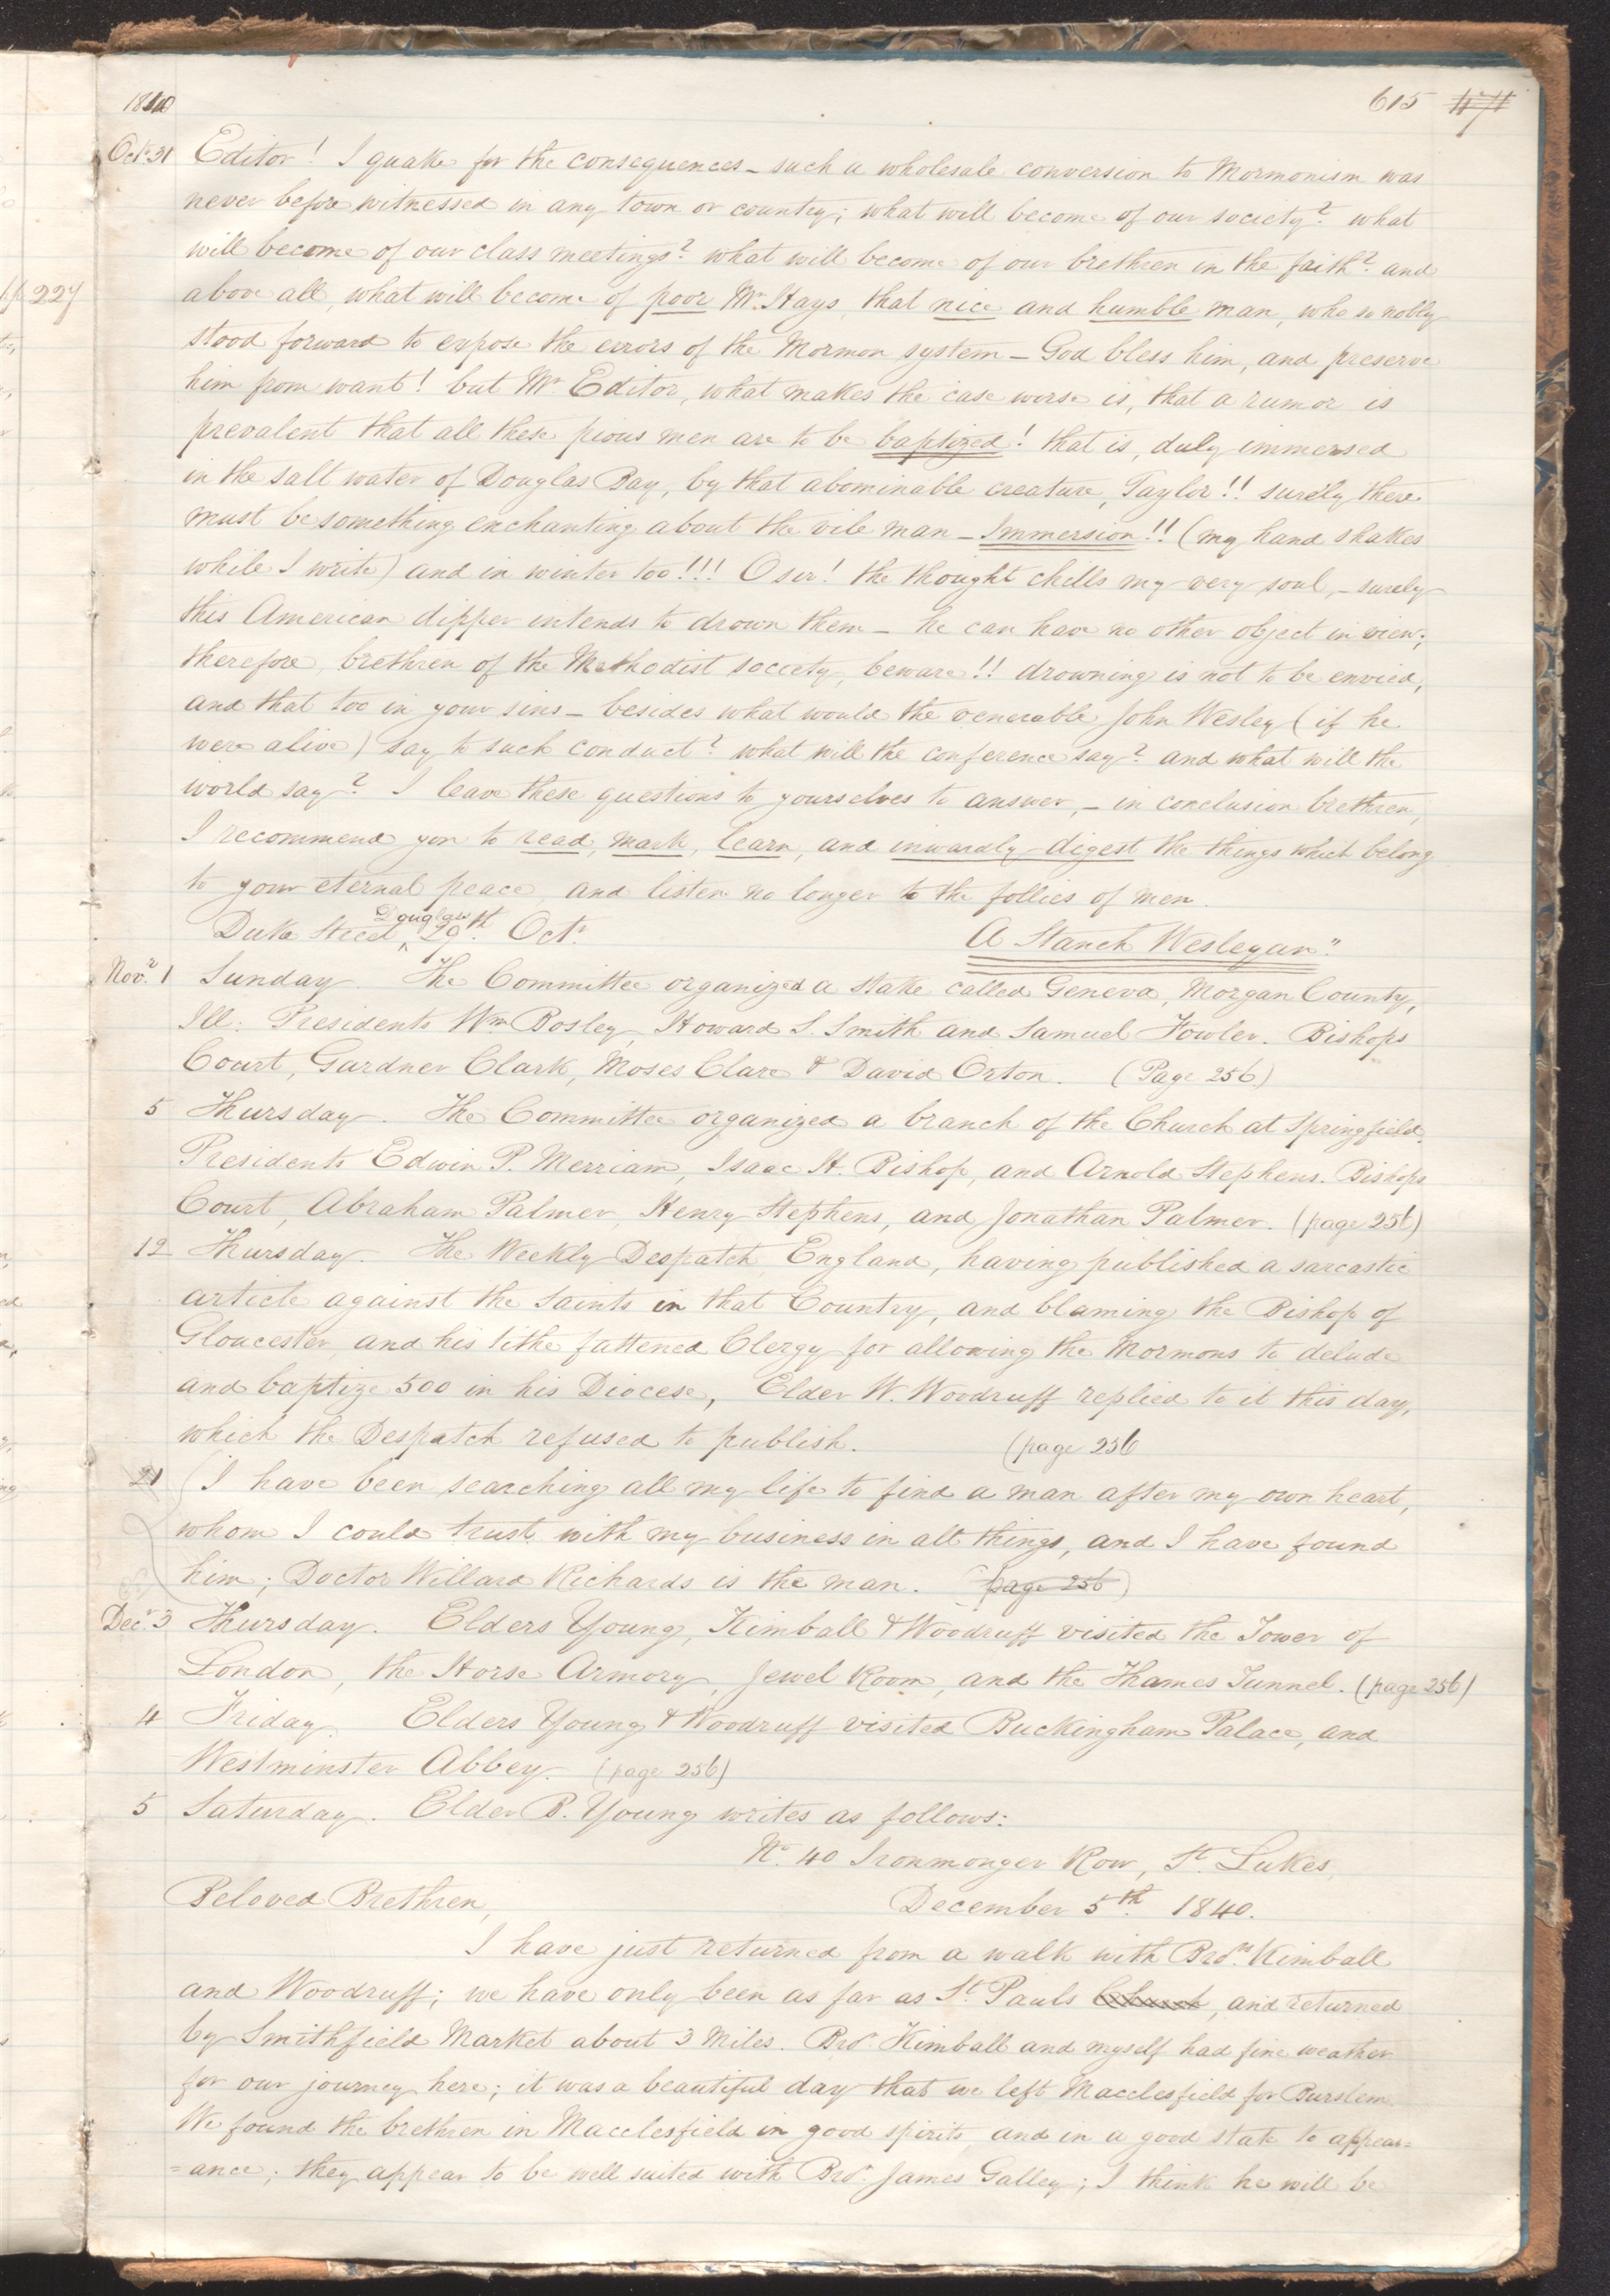 1840
615 1171
Octr. 31 Editor! I quake for the consequences – such a wholesale conversion to Mormonism was
never before witnessed in any town or country; what will become of our society? what
will become of our class meetings? what will become of our brethren in the faith? and
above all, what will become of poor Mr. Hays, that nice and humble man, who so nobly
stood forward to expose the errors of the Mormon system – God bless him, and preserve
him from want! but Mr. Editor, what makes the case worse is, that a rumor is
prevalent that all these pious men are to be baptized! that is, duly immersed
in the salt water of Douglas Bay, by that abominable creature, Taylor!! surely there
must be something enchanting about the vile man – Immersion!! (my hand shakes
while I write) and in winter too!!! O sir! the thought chills my very soul, – surely
this American dipper intends to drown them – he can have no other object in view;
therefore, brethren of the Methodist society, beware!! drowning is not to be envied,
and that too in your sins – besides what would the venerable John Wesley (if he
were alive) say to such conduct? what will the conference say? and what will the
world say? I leave these questions to yourselves to answer, – in conclusion brethren,
I recommend you to read, mark, learn, and inwardly digest the things which belong
to your eternal peace, and listen no longer to the follies of men.
Duke Street, Douglas 29th. Octr. A Stanch Wesleyan."
Novr. 1 Sunday. The Committee organized a stake called Geneva, Morgan County,
Ill: Presidents Wm Bosley, Howard S. Smith and Samuel Fowler. Bishops
Court, Gardner Clark, Moses Clare & David Orton. (Page 256)
5 Thursday. The Committee organized a branch of the Church at Springfield.
Presidents Edwin P. Merriam, Isaac H. Bishop, and Arnold Stephens. Bishops
Court, Abraham Palmer, Henry Stephens, and Jonathan Palmer. (page 256)
12 Thursday. The Weekly Despatch, England, having published a sarcastic
article against the Saints in that Country, and blaming the Bishop of
Gloucester and his tithe fattened Clergy for allowing the Mormons to delude
and baptize 500 in his Diocese, Elder W. Woodruff replied to it this day,
which the Despatch refused to publish. (page 256
21 I have been searching all my life to find a man after my own heart,
whom I could trust with my business in all things, and I have found
him; Doctor Willard Richards is the man. (page 256)
Decr. 3 Thursday. Elders Young, Kimball & Woodruff visited the Tower of
London, the Horse Armory, Jewel Room, and the Thames Tunnel. (page 256)
4 Friday. Elders Young & Woodruff visited Buckingham Palace, and
Westminster Abbey. (page 256)
5 Saturday. Elder B. Young writes as follows:
No. 40 Ironmonger Row, St. Lukes,
Beloved Brethren, December 5th. 1840.
I have just returned from a walk with Brors. Kimball
and Woodruff; we have only been as far as St. Pauls Church, and returned
by Smithfield Market about 3 Miles. Bror. Kimball and myself had fine weather
for our journey here; it was a beautiful day that we left Macclesfield for Burslem.
We found the brethren in Macclesfield in good spirits, and in a good state to appear=
=ance; they appear to be well suited with Bror. James Galley; I think he will be
227